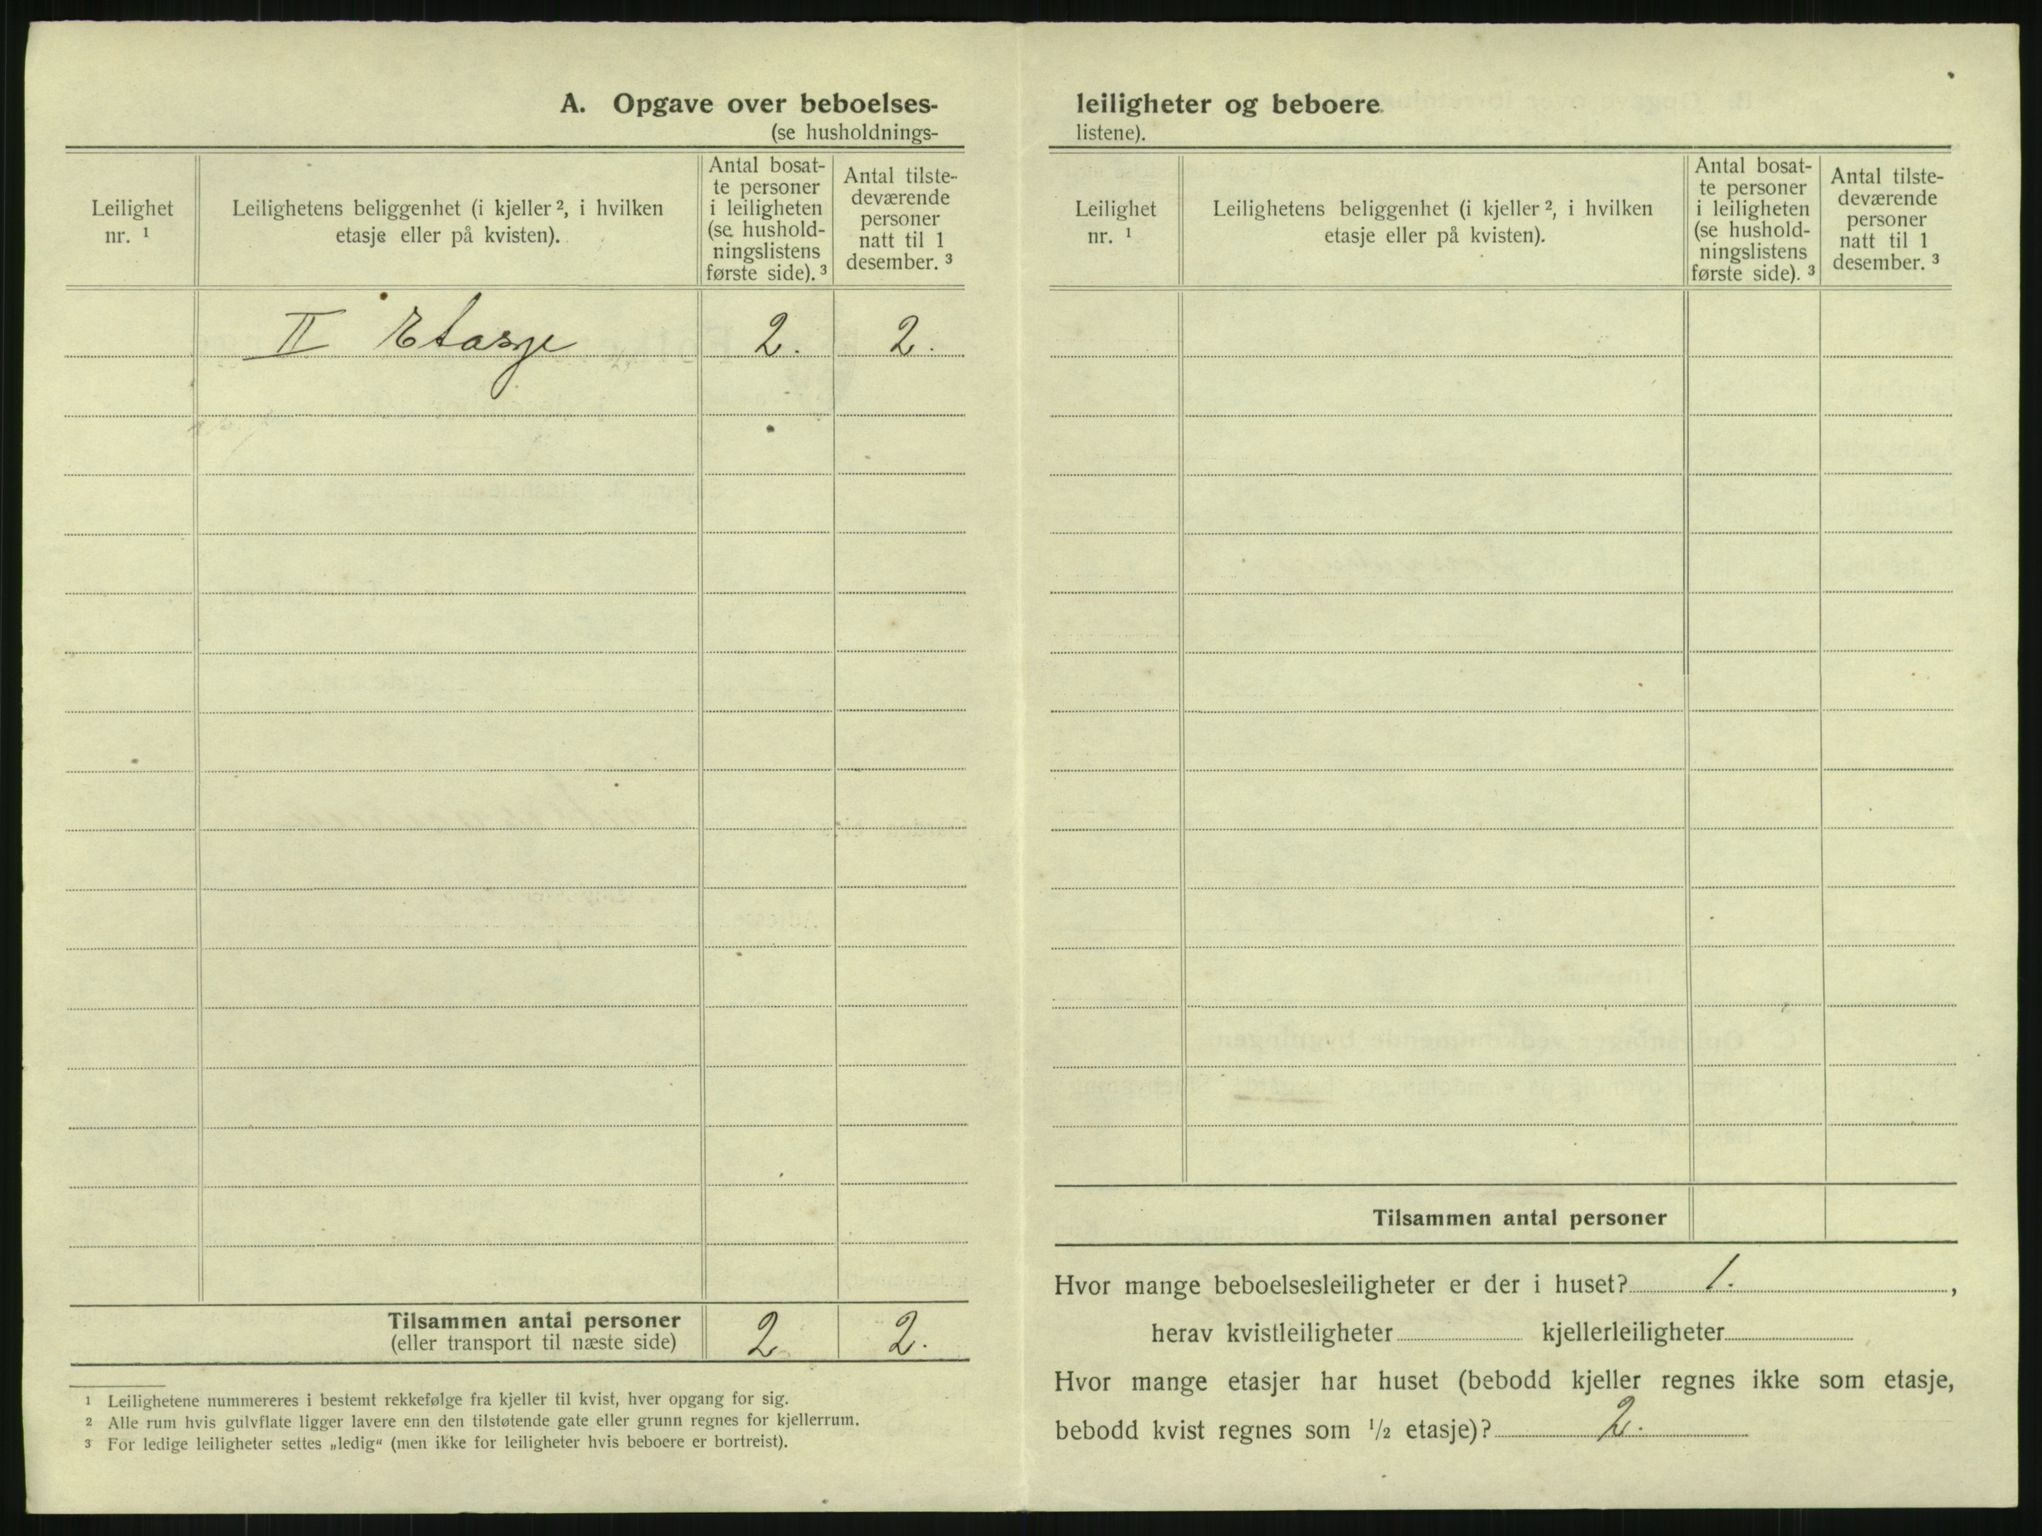 A. Opgave over beboelses-
(se husholdnings-
Leilighet
nr. ¹
Leilighetens beliggenhet (i kjeller ², i hvilken
etasje eller på kvisten).
Antal bosat-
te personer
i leiligheten
(se hushold-
ningslistens
første side). ³
Antal tilste-
deværende
personer
natt til 1
desember. ³
II Etasje 2. 2.
Tilsammen antal personer 2 2.
(eller transport til næste side)
¹ Leilighetene nummereres i bestemt rekkefølge fra kjeller til kvist, hver opgang for sig.
² Alle rum hvis gulvflate ligger lavere enn den tilstøtende gate eller grunn regnes for kjellerrum.
³ For ledige leiligheter settes „ledig“ (men ikke for leiligheter hvis beboere er bortreist).
leiligheter og beboere
listene).
Leilighet
nr. ¹
Leilighetens beliggenhet (i kjeller ², i hvilken
etasje eller på kvisten).
Antal bosat-
te personer
i leiligheten
(se hushold-
ningslistens
første side). ³
Antal tilste-
deværende
personer
natt til 1
desember. ³
Tilsammen antal personer
Hvor mange beboelsesleiligheter er der i huset? 1. ,
herav kvistleiligheter kjellerleiligheter
Hvor mange etasjer har huset (bebodd kjeller regnes ikke som etasje,
bebodd kvist regnes som ½ etasje)? 2.